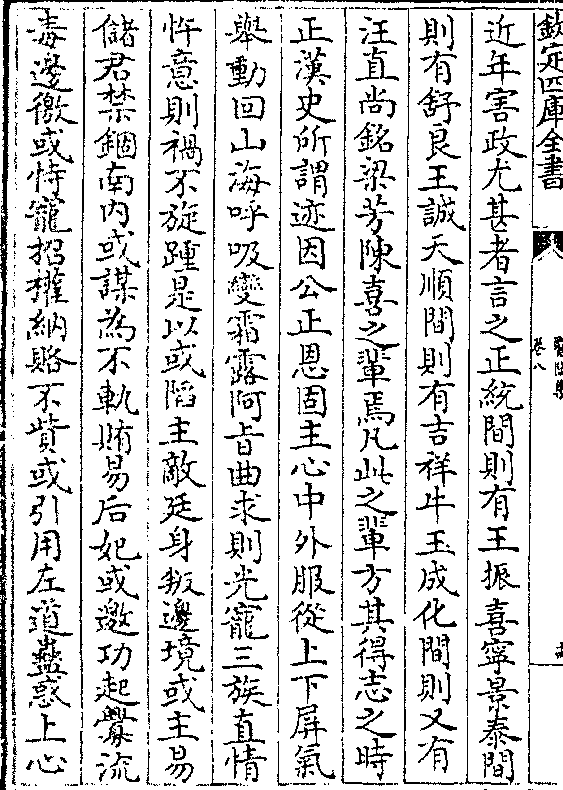 欽定四庫全書
卷八
近年害政尤甚者言之正統間則有王振喜寧景泰間
則有舒良王誠天順間則有吉祥牛玉成化間則又有
汪直尚銘梁芳陳喜之輩焉凡此之輩方其得志之時
正漢史所謂迹因公正恩固主心中外服從上下屏氣
舉動回山海呼吸變霜露阿旨曲求則光寵三族直情
忤意則禍不旋踵是以或陷主敵廷身叛邊境或主易
儲君禁錮南内或謀為不軌賄易后妃或邀功起釁流
毒邊徼或恃寵招權納賂不貲或引用左道蠱惑上心